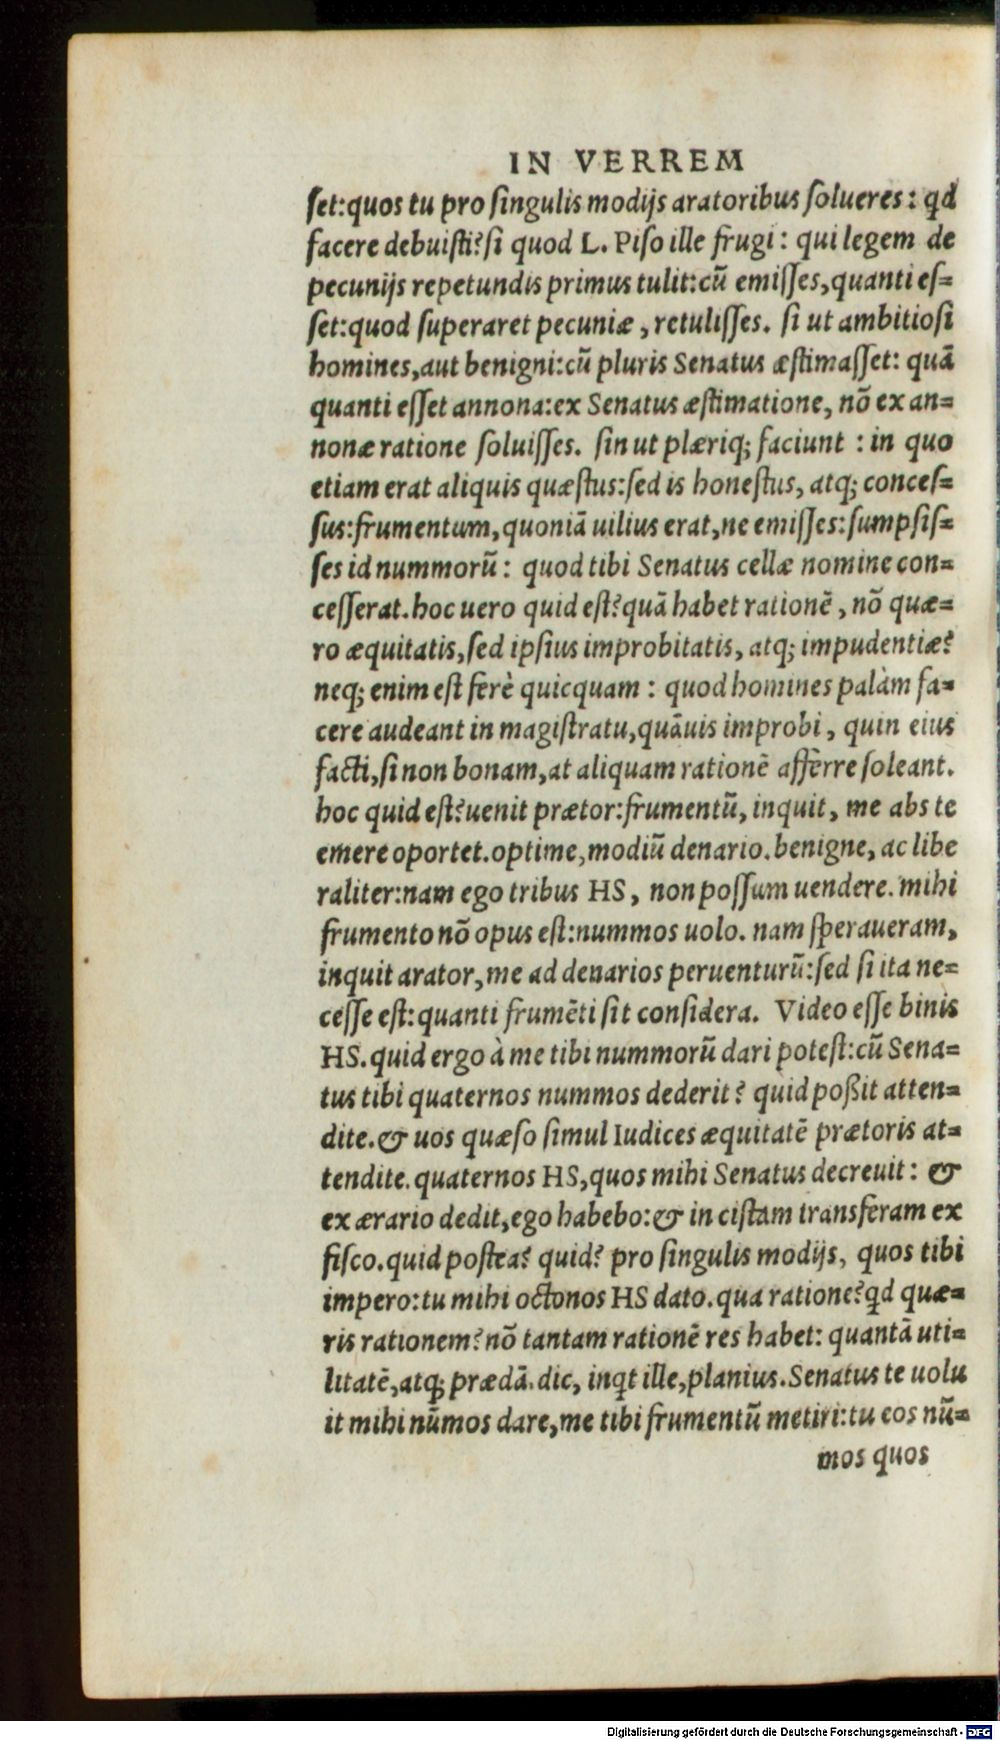 IN VERREM
set:quos tu pro singulis modijs aratoribus solueres: qd
facere debuisti?si quod L. Piso ille frugi: qui legem de
pecunijs repetundis primus tulit:cū emisses,quanti es=
set:quod superaret pecuniæ, retulisses. si ut ambitiosi
homines,aut benigni:cū pluris Senatus æstimasset: quā
quanti esset annona:ex Senatus æstimatione, nō ex an=
nonæ ratione soluisses. sin ut plæriq; faciunt : in quo
etiam erat aliquis quæstus:sed is honestus, atq; conces=
sus:frumentum,quoniā uilius erat,ne emisses:sumpsis=
ses id nummorū: quod tibi Senatus cellæ nomine con=
cesserat.hoc uero quid est?quā habet rationē, nō quæ=
ro æquitatis,sed ipsius improbitatis, atq; impudentiæ?
neq; enim est ferè quicquam: quod homines palàm fa=
cere audeant in magistratu,quāuis improbi, quin eius
facti,si non bonam,at aliquam rationē afferre soleant.
hoc quid est?uenit prætor:frumentū, inquit, me abs te
emere oportet.optime,modiū denario.benigne, ac libe
raliter:nam ego tribus HS, non possum uendere. mihi
frumento nō opus est:nummos uolo. nam speraueram,
inquit arator,me ad denarios peruenturū:sed si ita ne=
cesse est:quanti frumēti sit considera. Video esse binis
HS.quid ergo à me tibi nummorū dari potest:cū Sena=
tus tibi quaternos nummos dederit? quid poßit atten=
dite.& uos quæso simul Iudices æquitatē prætoris at=
tendite.quaternos HS,quos mihi Senatus decreuit: &
ex ærario dedit,ego habebo:& in cistam transferam ex
fisco.quid postea? quid? pro singulis modijs, quos tibi
impero:tu mihi octonos HS dato.qua ratione?qd quæ=
ris rationem?nō tantam rationē res habet: quantā uti=
litatē,atq; prædā.dic, inqt ille,planius.Senatus te uolu
it mihi nūmos dare,me tibi frumentū metiri:tu eos nū=
mos quos
Digitalisierung gefördert durch die Deutsche Forschungsgemeinschaft - DFG